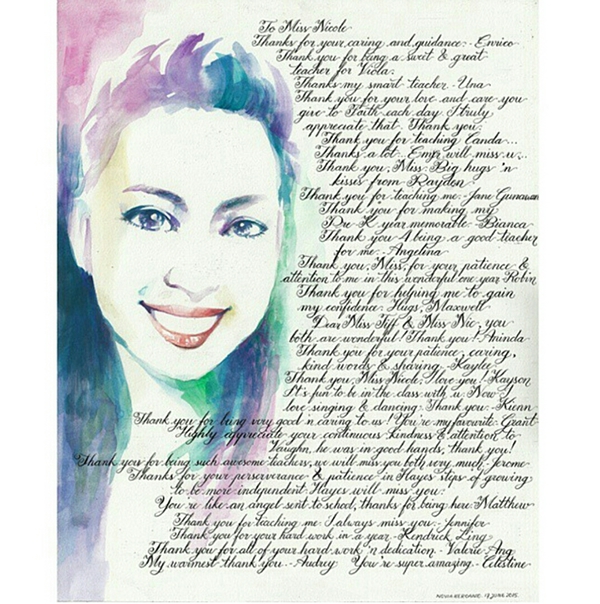 To Miss Nicole
Thanks for your caring and guidance - Enrico
Thank you for being a sweet & great
teacher for Viola.
Thanks my smart teacher - Una
Thank you for your love and care you
give to Faith each day. I truly
appreciate that. Thank you.
Thank you for teaching Canda...
Thanks a lot. Emp will miss u...
Thank you, Miss. Big hugs 'n
kisses from Raydon
Thank you for teaching me. Jane Gunawan
Thank you for making my
Pre-K year memorable - Bianca
Thank you 4 being a good teacher
for me - Angelina
Thank you, Miss, for your patience &
attention to me in this wonderful one year - Robin
Thank you for helping me to gain
my confidence. Hugs, Maxwell
Dear Miss Tiff & Miss Nic, you
both are wonderful! Thank you! Aninda
Thank you for your patience, caring,
kind words & sharing - Kaylee
Thank you, Miss Nicole, I love you! Kayson
It's fun to be in the class with u. Now I
love singing & dancing. Thank you - Kienn
Thank you for being very good 'n caring to us! You're my favourite - Grant
Highly appreciate your continuous kindness & attention to
Vaughn, he was in good hands, thank you!
Thank you for being such awesome teachers, we will miss you both very much, Jerome
Thanks for your perseverance & patience in Hayes' steps of growing
to be more independent. Hayes will miss you.
You're like an angel sent to school, thanks for being here - Matthew
Thank you for teaching me. I always miss you - Jennifer
Thank you for your hard work in a year - Kendrick Ling
Thank you for all of your hard work 'n dedication - Valerie Ang
My warmest thank you - Audrey You're super amazing - Celestine
17 JUNE 2015